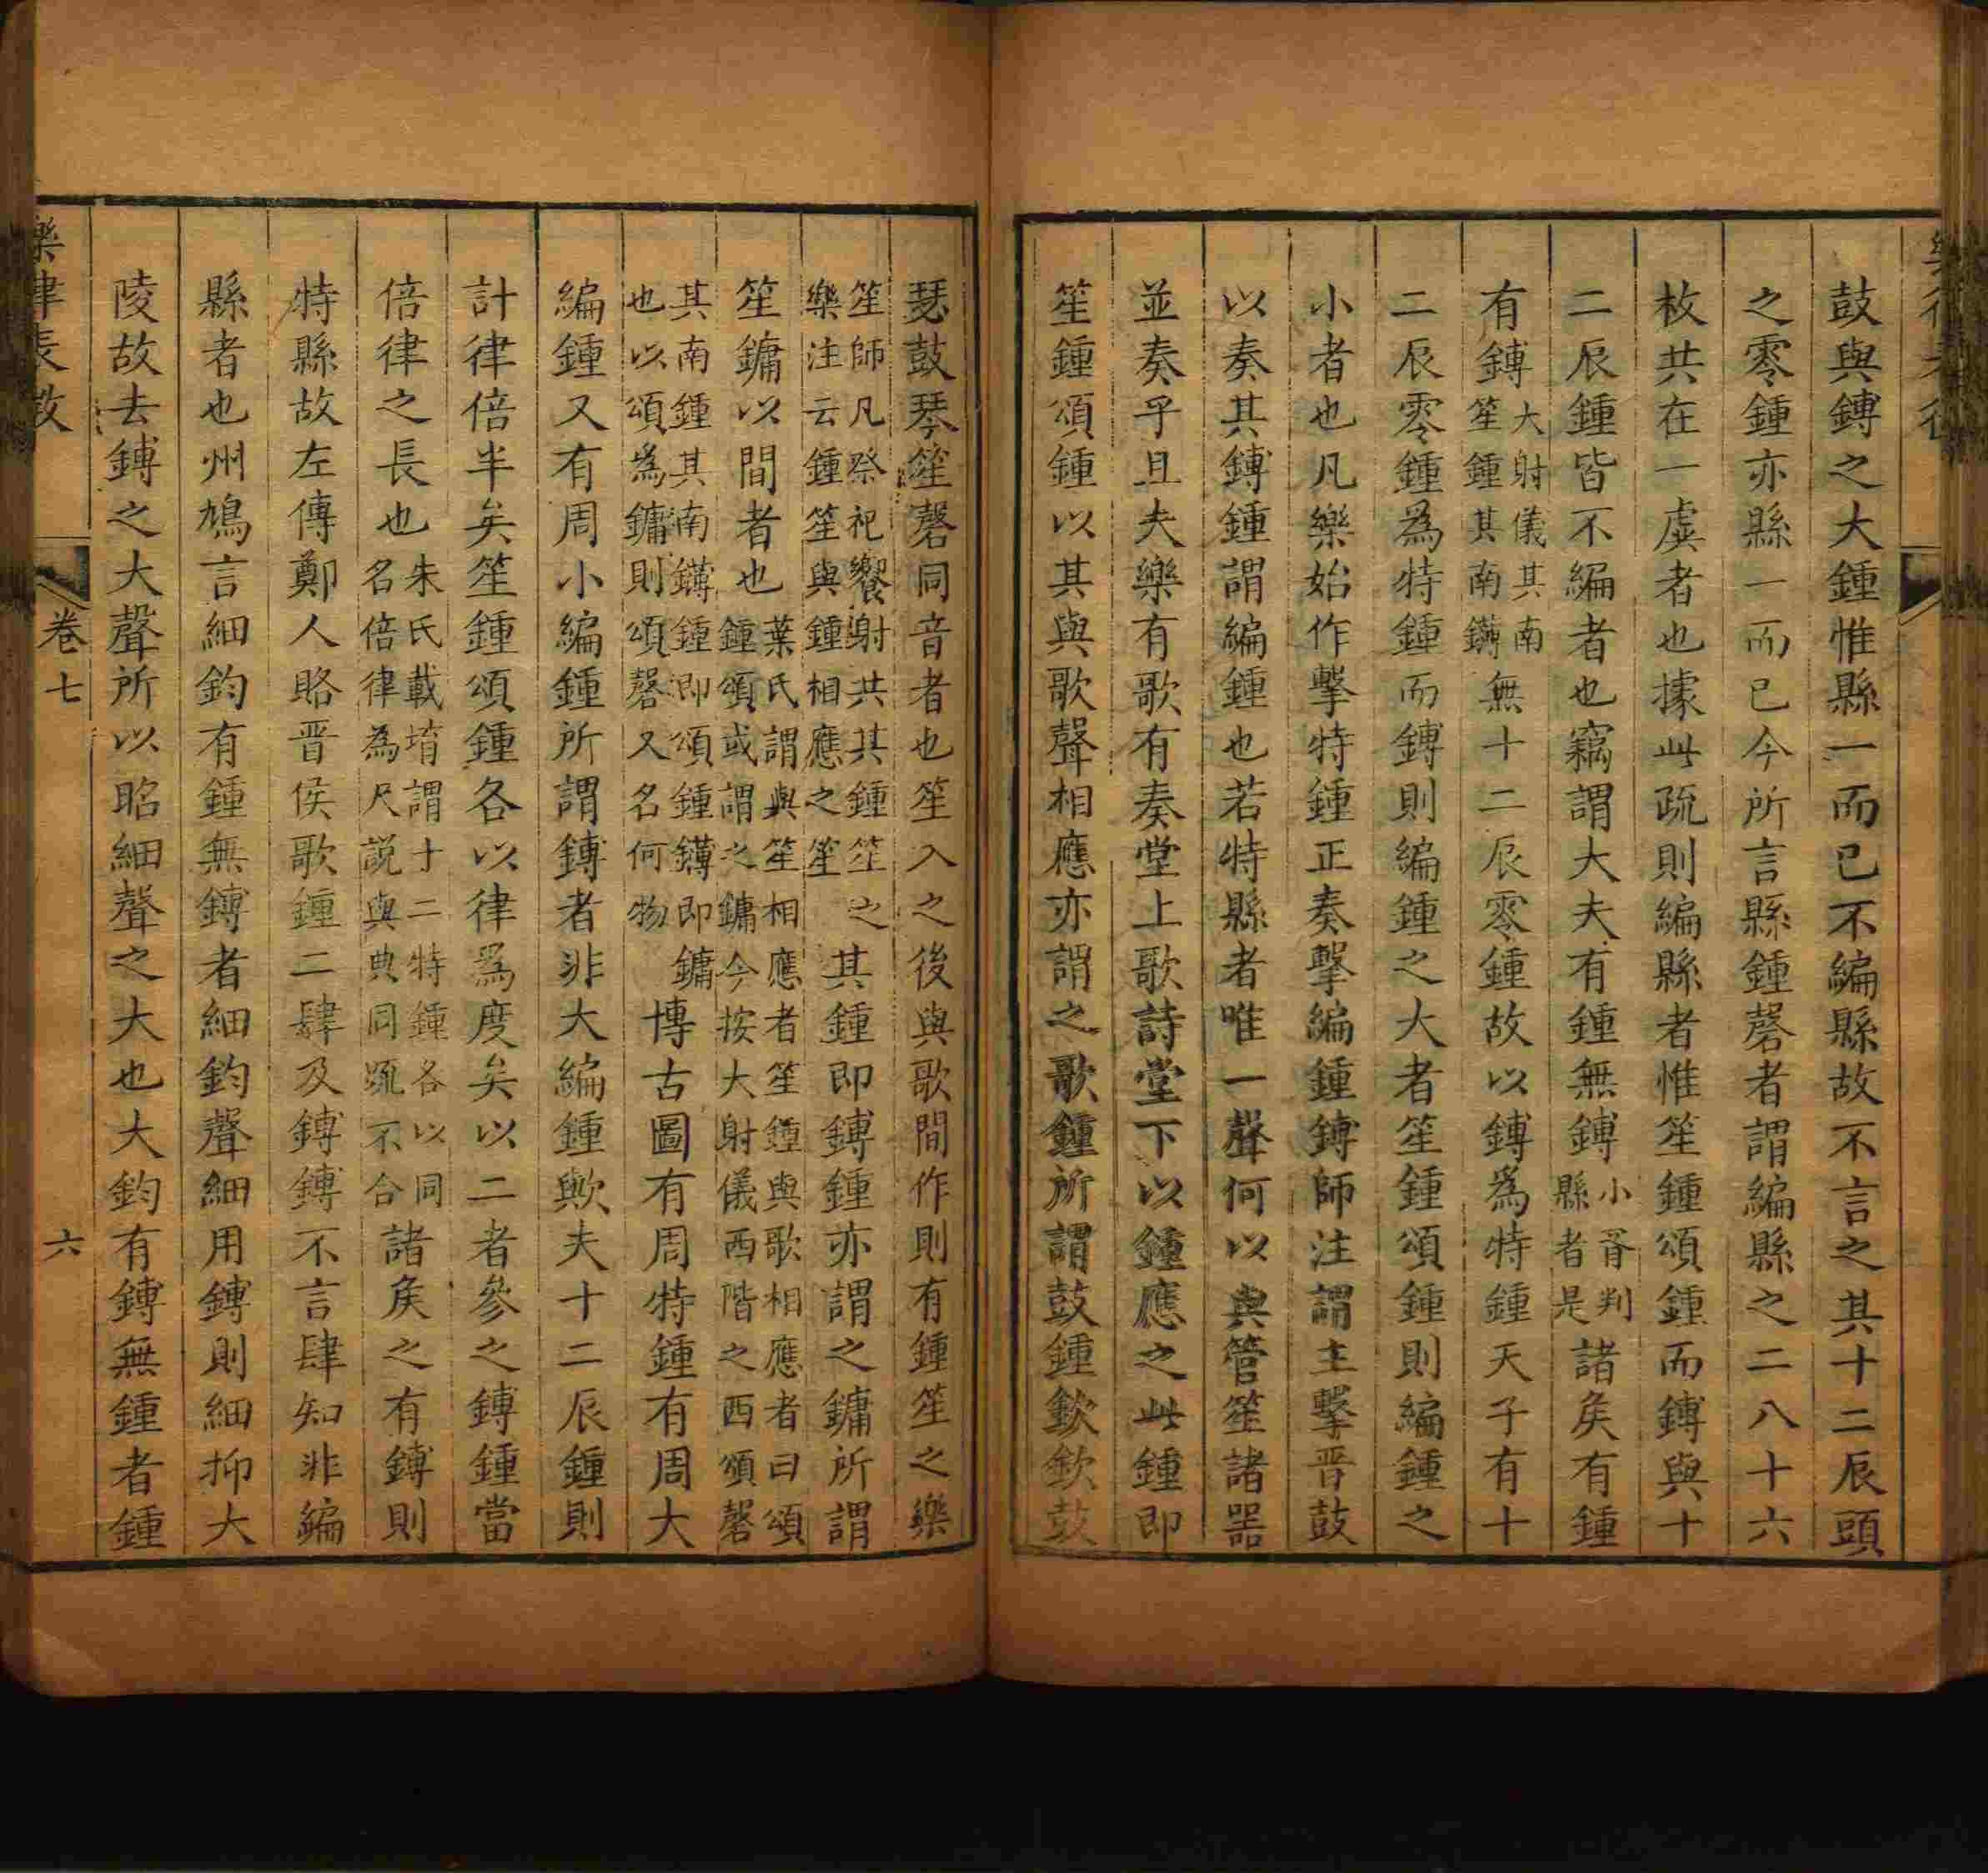 鼓與鎛之大鍾惟縣一而已不編縣故不言之其十二辰頭
之零鍾亦縣一而已今所言縣鍾磬者謂編縣之二八十六
枚共在一虡者也據此疏則編縣者惟笙鍾頌鍾而鎛與十
二辰鍾皆不編者也竊謂大夫有鍾無鎛小胥判縣者是諸矦有鍾
有鎛大射儀其南笙鍾其南鑮無十二辰零鍾故以鎛爲特鍾天子有十
二辰零鍾爲特鍾而鎛則編鍾之大者笙鍾頌鍾則編鍾之
小者也凡樂始作擊特鍾正奏擊編鍾鎛師注謂主擊晋鼓
以奏其鎛鍾謂編鍾也若特縣者唯一聲何以與管笙諸器
並奏乎且夫樂有歌有奏堂上歌詩堂下以鍾應之此鍾即
笙鍾頌鍾以其與歌聲相應亦謂之歌鍾所謂鼓鍾欽欽鼓
瑟鼓琴笙磬同音者也笙入之後與歌間作則有鍾笙之樂
笙師凡祭祀饗射共其鍾笙之樂注云鍾笙與鍾相應之笙其鍾即鎛鍾亦謂之鏞所謂
笙鏞以間者也葉氏謂與笙相應者笙鍾與歌相應者曰頌鍾頌或謂之鏞今按大射儀西階之西頌磬
其南鍾其南鑮鍾即頌鍾鑮即鏞也以頌為鏞則頌磬又名何物博古圖有周特鍾有周大
編鍾又有周小編鍾所謂鎛者非大編鍾歟夫十二辰鍾則
計律倍半矣笙鍾頌鍾各以律爲度矣以二者參之鎛鍾當
倍律之長也朱氏載堉謂十二特鍾各以同名倍律為尺説與典同疏不合諸矦之有鎛則
特縣故左傳鄭人賂晋侯歌鍾二肆及鎛鎛不言肆知非編
縣者也州鳩言細鈞有鍾無鎛者細鈞聲細用鎛則細抑大
陵故去鎛之大聲所以昭細聲之大也大鈞有鎛無鍾者鍾
卷七
六